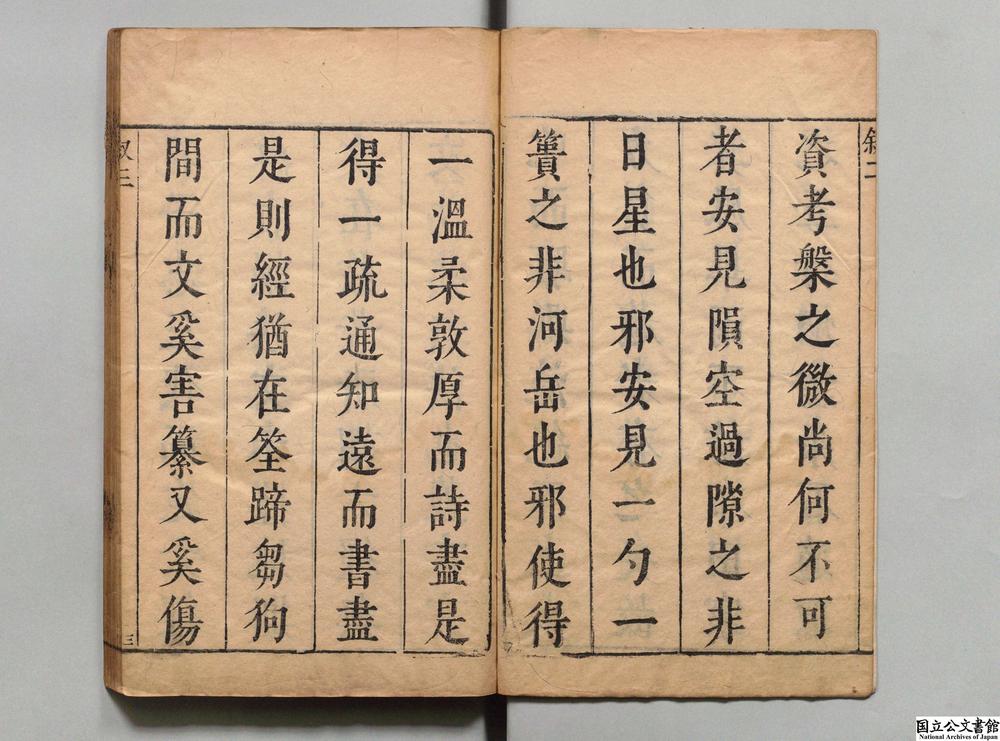 敘二
資考槃之微尚何不可
者安見隕空過隙之非
日星也邪安見一勺一
簣之非河岳也邪使得
一溫柔敦厚而詩盡是
得一疏通知遠而書盡
是則經猶在筌蹄芻狗
間而文奚害纂又奚傷
三
国立公文書館
National Archives of Japan